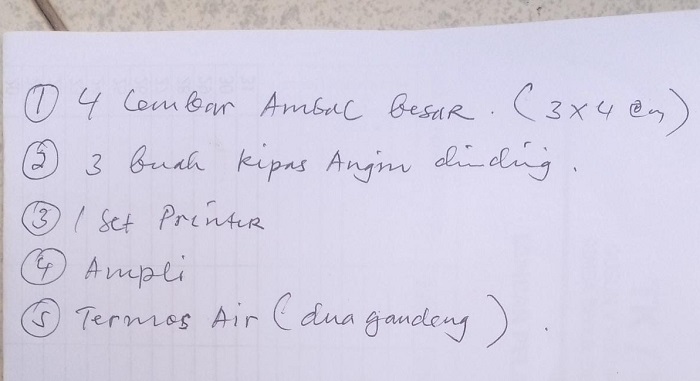 ① 4 Lembar Ambal besar. (3x4 m)
② 3 buah kipas Angin dinding.
③ 1 Set Printer
④ Ampli
⑤ Termos Air (dua gandeng).